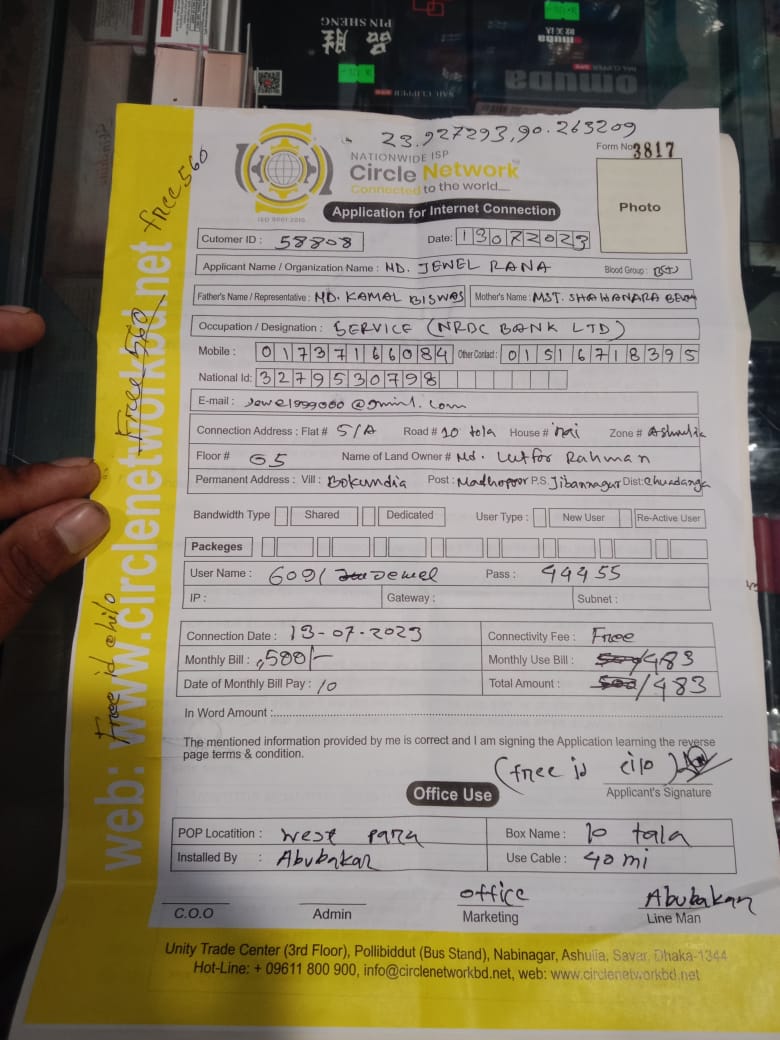 PIN SHENG
品 胜
omuda
NAIL CLIPPER
23.927293,90.265209
NATIONWIDE ISP
Circle Network
Connected to the world....
ISO 9001:2015
Form No 3817
Application for Internet Connection
Photo
Cutomer ID : 58808
Date: 13072023
Applicant Name / Organization Name : MD. JEWEL RANA
Blood Group :
Father's Name / Representative : MD. KAMAL BISWAS
Mother's Name : MST. SHAHANARA
Occupation / Designation : SERVICE (NRDC BANK LTD)
Mobile : 01737166084 Other Contact : 01516718395
National Id: 3279530798
E-mail : Jewel999000@gmail.com
Connection Address : Flat # 5/A Road # 10 tola House # nai Zone # Ashulia
Floor # G5 Name of Land Owner # Md. Lutfor Rahman
Permanent Address : Vill : Bokundia Post : Madhopoor P.S. Jibannagur Dist: Chuadanga
Bandwidth Type Shared Dedicated User Type : New User Re-Active User
Packeges
User Name : 6091 Jewel Pass : 44455
IP : Gateway : Subnet :
Connection Date : 13-07-2023 Connectivity Fee : Free
Monthly Bill : 500/- Monthly Use Bill : 500/483
Date of Monthly Bill Pay : 10 Total Amount : 500/483
In Word Amount :
The mentioned information provided by me is correct and I am signing the Application learning the reverse
page terms & condition.
(free id
Applicant's Signature
Office Use
POP Locatition : West para Box Name : 10 tala
Installed By : Abubakar Use Cable : 40 mi
office Abubakar
C.O.O Admin Marketing Line Man
Unity Trade Center (3rd Floor), Pollibiddut (Bus Stand), Nabinagar, Ashulia, Savar, Dhaka-1344
Hot-Line: + 09611 800 900, info@circlenetworkbd.net, web: www.circlenetworkbd.net
web: www.circlenetworkbd.net
free 560
Free 560
Free id